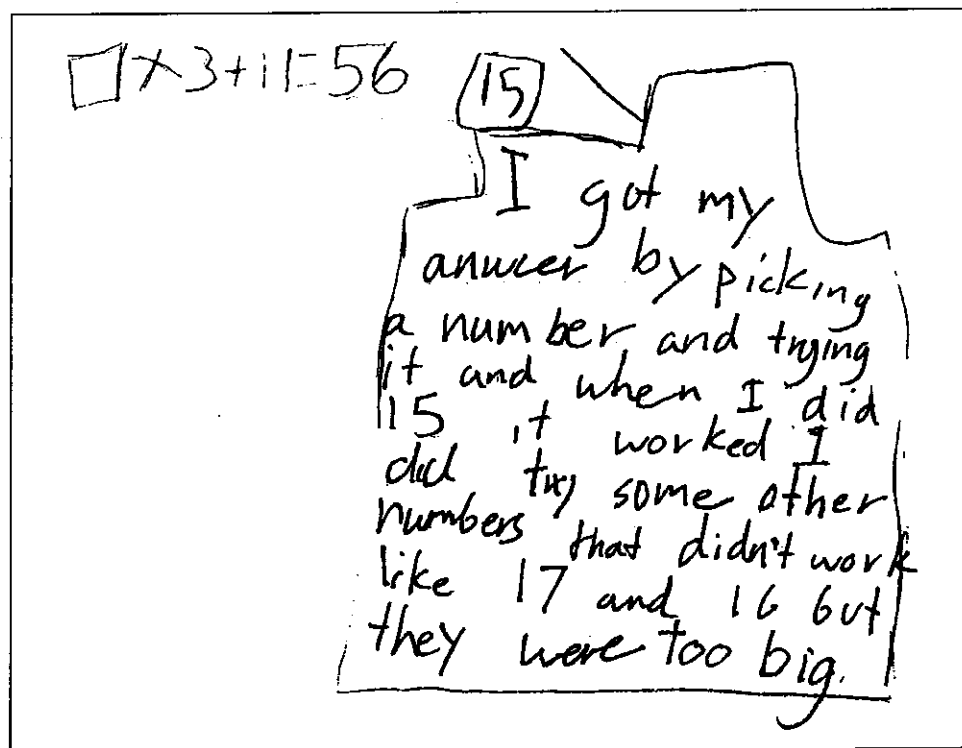 □×3+11=56
15
I got my
anucer by picking
a number and trying
it and when I did
15 it worked I
did try some other
numbers that didn't work
like 17 and 16 but
they were too big.